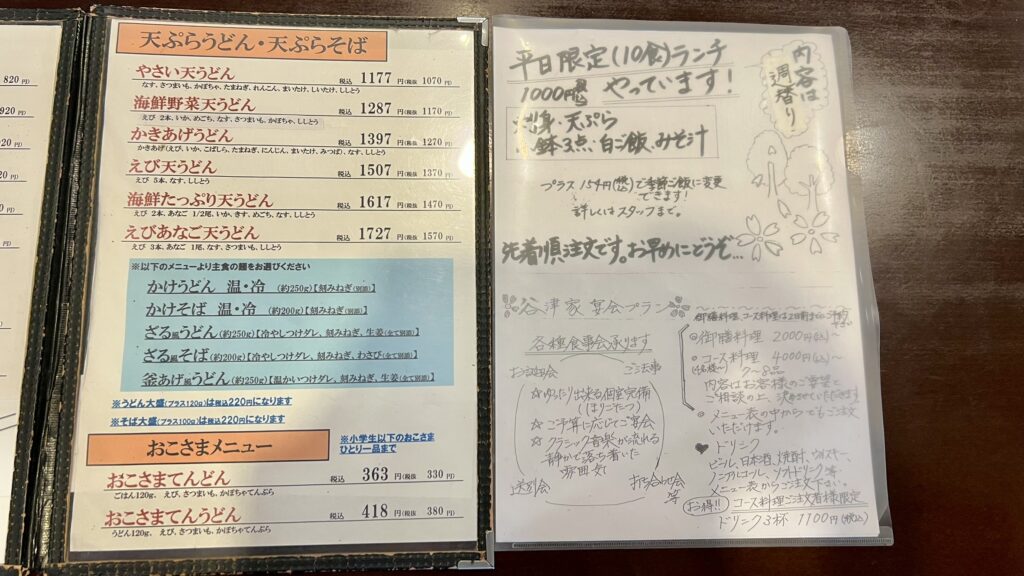 820 円)
920 円)
天ぷらうどん・天ぷらそば
やさい天うどん 税込 1177 円(税抜 1070 円)
なす、さつまいも、かぼちゃ、たまねぎ、れんこん、まいたけ、しいたけ、ししとう
海鮮野菜天うどん 税込 1287 円(税抜 1170 円)
えび 2本、いか、めごち、なす、さつまいも、かぼちゃ、ししとう
かきあげうどん 税込 1397 円(税抜 1270 円)
かきあげ(えび、いか、こばしら、たまねぎ、にんじん、まいたけ、みつば)、なす、ししとう
えび天うどん 税込 1507 円(税抜 1370 円)
えび 5本、なす、ししとう
海鮮たっぷり天うどん 税込 1617 円(税抜 1470 円)
えび 2本、あなご 1/2尾、いか、きす、めごち、なす、ししとう
えびあなご天うどん 税込 1727 円(税抜 1570 円)
えび 3本、あなご 1尾、なす、さつまいも、ししとう
※以下のメニューより主食の麺をお選びください
かけうどん 温・冷 (約250g)【刻みねぎ(別添)】
かけそば 温・冷 (約200g)【刻みねぎ(別添)】
ざる風うどん(約250g)【冷やしつけダレ、刻みねぎ、生姜(全て別添)】
ざる風そば(約200g)【冷やしつけダレ、刻みねぎ、わさび(全て別添)】
釜あげ風うどん(約250g)【温かいつけダレ、刻みねぎ、生姜(全て別添)】
※うどん大盛(プラス120g)は税込220円になります
※そば大盛(プラス100g)は税込220円になります
おこさまメニュー
※小学生以下のおこさま
ひとり一品まで
おこさまてんどん 363 円(税抜 330 円)
ごはん120g、えび、さつまいも、かぼちゃてんぷら
おこさまてんうどん 税込 418 円(税抜 380 円)
うどん120g、えび、さつまいも、かぼちゃてんぷら
平日限定(10食)ランチ
1000円(税込) やっています!
内容は
週替り
刺身・天ぷら
小鉢3点、白ご飯、みそ汁
プラス 154円(税込)で季節ご飯に変更
できます!
詳しくはスタッフまで。
先着順注文です。お早めにどうぞ…
谷津家 宴会プラン
各種食事会承ります
お祝い会 ご法事
☆ゆったり出来る個室完備
(ほりごたつ)
☆ご予算に応じてご宴会
☆クラシック音楽が流れる
静かで落ち着いた
雰囲気
送別会 打ち合わせ会
等
御膳料理、コース料理は2日前までにご予約
下さい
◎御膳料理 2000円(税込)〜
・コース料理 4000円(税込)〜
7〜8品
内容はお客様のご要望と
ご相談の上、決めさせていただきます
◎メニュー表の中からでもご注文
いただけます。
♥ドリンク
ビール、日本酒、焼酎、ウイスキー、
ノンアルコール、ソフトドリンク等
メニュー表からご注文下さい。
お得!! コース料理ご注文者様限定
ドリンク3杯 1100円(税込)